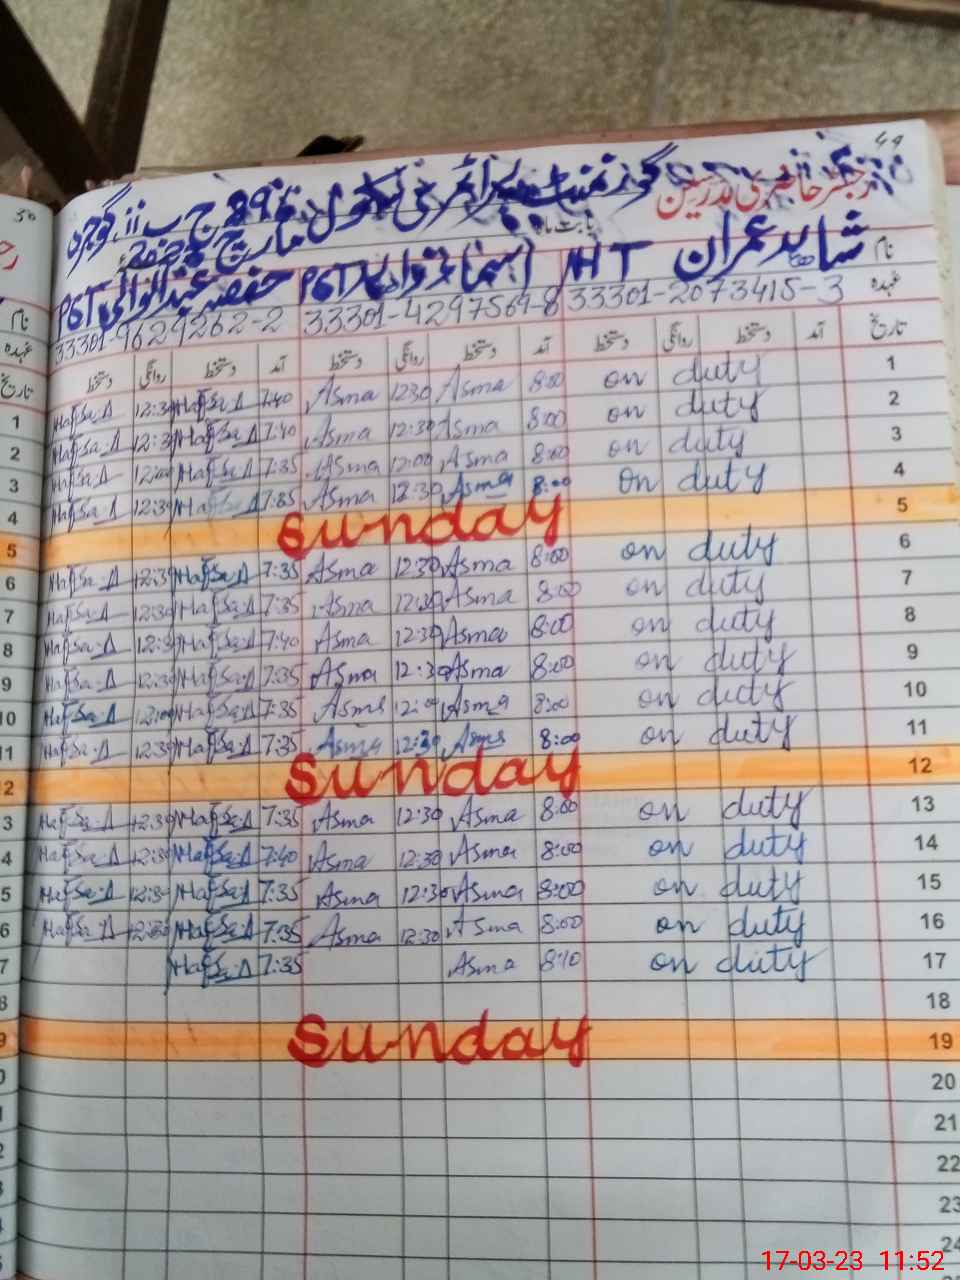 49
رجسٹر حاضری مدرسین گورنمنٹ پرائمری سکول 89 ج ب گوجرہ
بابت ماہ مارچ
نام شاہد عمران HT اسماء PGT حفصہ عبدالوالی PGT
عہدہ 33301-2073415-3 33301-4297569-8 33301-9629262-2
تاریخ آمد دستخط روانگی دستخط آمد دستخط روانگی دستخط آمد دستخط روانگی دستخط
1 on duty 8:00 Asma 12:30 Asma 7:40 Hafsa.A 12:30 Hafsa.A
2 on duty 8:00 Asma 12:30 Asma 7:40 Hafsa.A 12:30 Hafsa.A
3 on duty 8:00 Asma 12:00 Asma 7:35 Hafsa.A 12:00 Hafsa.A
4 on duty 8:00 Asma 12:30 Asma 7:35 Hafsa.A 12:30 Hafsa.A
5 Sunday
6 on duty 8:00 Asma 12:30 Asma 7:35 Hafsa.A 12:30 Hafsa.A
7 on duty 8:00 Asma 12:30 Asma 7:35 Hafsa.A 12:30 Hafsa.A
8 on duty 8:00 Asma 12:30 Asma 7:40 Hafsa.A 12:30 Hafsa.A
9 on duty 8:00 Asma 12:30 Asma 7:35 Hafsa.A 12:30 Hafsa.A
10 on duty 8:00 Asma 12:00 Asma 7:35 Hafsa.A 12:00 Hafsa.A
11 on duty 8:00 Asma 12:30 Asma 7:35 Hafsa.A 12:30 Hafsa.A
12 Sunday
13 on duty 8:00 Asma 12:30 Asma 7:35 Hafsa.A 12:30 Hafsa.A
14 on duty 8:00 Asma 12:30 Asma 7:40 Hafsa.A 12:30 Hafsa.A
15 on duty 8:00 Asma 12:30 Asma 7:35 Hafsa.A 12:30 Hafsa.A
16 on duty 8:00 Asma 12:30 Asma 7:35 Hafsa.A 12:30 Hafsa.A
17 on duty 8:10 Asma 7:35 Hafsa.A
18
19 Sunday
20
21
22
23
24
50
نام
عہدہ
تاریخ
1
2
3
4
5
6
7
8
9
10
11
17-03-23 11:52